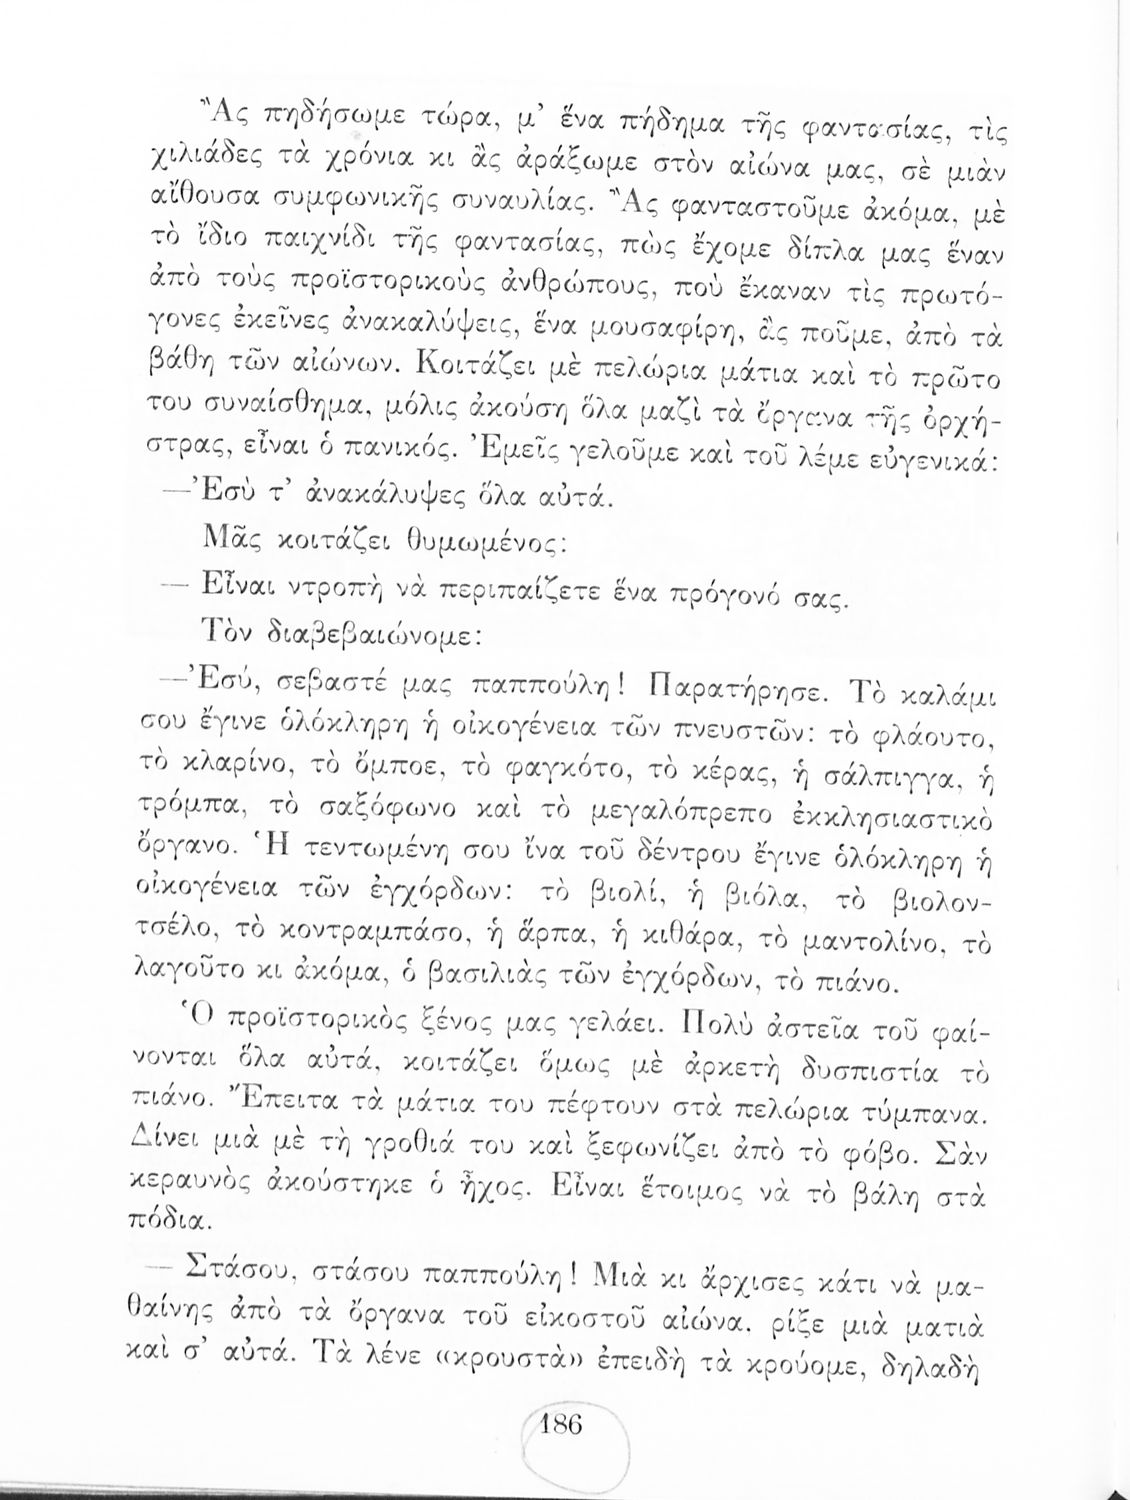 Ἂς πηδήσωμε τώρα, μ’ ἕνα πήδημα τῆς φαντασίας, τὶς
χιλιάδες τὰ χρόνια κι ἂς ἀράξωμε στὸν αἰώνα μας, σὲ μιὰν
αἴθουσα συμφωνικῆς συναυλίας. Ἂς φανταστοῦμε ἀκόμα, μὲ
τὸ ἴδιο παιχνίδι τῆς φαντασίας, πὼς ἔχομε δίπλα μας ἕναν
ἀπὸ τοὺς προϊστορικοὺς ἀνθρώπους, ποὺ ἔκαναν τὶς πρωτό-
γονες ἐκεῖνες ἀνακαλύψεις, ἕνα μουσαφίρη, ἂς ποῦμε, ἀπὸ τὰ
βάθη τῶν αἰώνων. Κοιτάζει μὲ πελώρια μάτια καὶ τὸ πρῶτο
του συναίσθημα, μόλις ἀκούση ὅλα μαζὶ τὰ ὄργανα τῆς ὀρχή-
στρας, εἶναι ὁ πανικός. Ἐμεῖς γελοῦμε καὶ τοῦ λέμε εὐγενικά:
—Ἐσὺ τ’ ἀνακάλυψες ὅλα αὐτά.
Μᾶς κοιτάζει θυμωμένος:
— Εἶναι ντροπὴ νὰ περιπαίζετε ἕνα πρόγονό σας.
Τὸν διαβεβαιώνομε:
—Ἐσύ, σεβαστέ μας παππούλη! Παρατήρησε. Τὸ καλάμι
σου ἔγινε ὁλόκληρη ἡ οἰκογένεια τῶν πνευστῶν: τὸ φλάουτο,
τὸ κλαρίνο, τὸ ὄμποε, τὸ φαγκότο, τὸ κέρας, ἡ σάλπιγγα, ἡ
τρόμπα, τὸ σαξόφωνο καὶ τὸ μεγαλόπρεπο ἐκκλησιαστικὸ
ὄργανο. Ἡ τεντωμένη σου ἵνα τοῦ δέντρου ἔγινε ὁλόκληρη ἡ
οἰκογένεια τῶν ἐγχόρδων: τὸ βιολί, ἡ βιόλα, τὸ βιολον-
τσέλο, τὸ κοντραμπάσο, ἡ ἅρπα, ἡ κιθάρα, τὸ μαντολίνο, τὸ
λαγοῦτο κι ἀκόμα, ὁ βασιλιὰς τῶν ἐγχόρδων, τὸ πιάνο.
Ὁ προϊστορικὸς ξένος μας γελάει. Πολὺ ἀστεῖα τοῦ φαί-
νονται ὅλα αὐτά, κοιτάζει ὅμως μὲ ἀρκετὴ δυσπιστία τὸ
πιάνο. Ἔπειτα τὰ μάτια του πέφτουν στὰ πελώρια τύμπανα.
Δίνει μιὰ μὲ τὴ γροθιά του καὶ ξεφωνίζει ἀπὸ τὸ φόβο. Σὰν
κεραυνὸς ἀκούστηκε ὁ ἦχος. Εἶναι ἕτοιμος νὰ τὸ βάλη στὰ
πόδια.
— Στάσου, στάσου παππούλη! Μιὰ κι ἄρχισες κάτι νὰ μα-
θαίνης ἀπὸ τὰ ὄργανα τοῦ εἰκοστοῦ αἰώνα, ρίξε μιὰ ματιὰ
καὶ σ’ αὐτά. Τὰ λένε «κρουστὰ» ἐπειδὴ τὰ κρούομε, δηλαδὴ
186